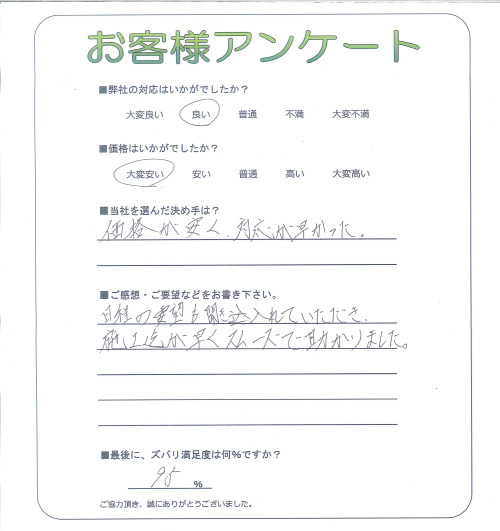 お客様アンケート
■弊社の対応はいかがでしたか？
大変良い 良い 普通 不満 大変不満
■価格はいかがでしたか？
大変安い 安い 普通 高い 大変高い
■当社を選んだ決め手は？
価格が安く、対応が早かった。
■ご感想・ご要望などをお書き下さい。
日程の要望も聞き入れていただき、
施工迄が早くスムーズで助かりました。
■最後に、ズバリ満足度は何％ですか？
95 ％
ご協力頂き、誠にありがとうございました。